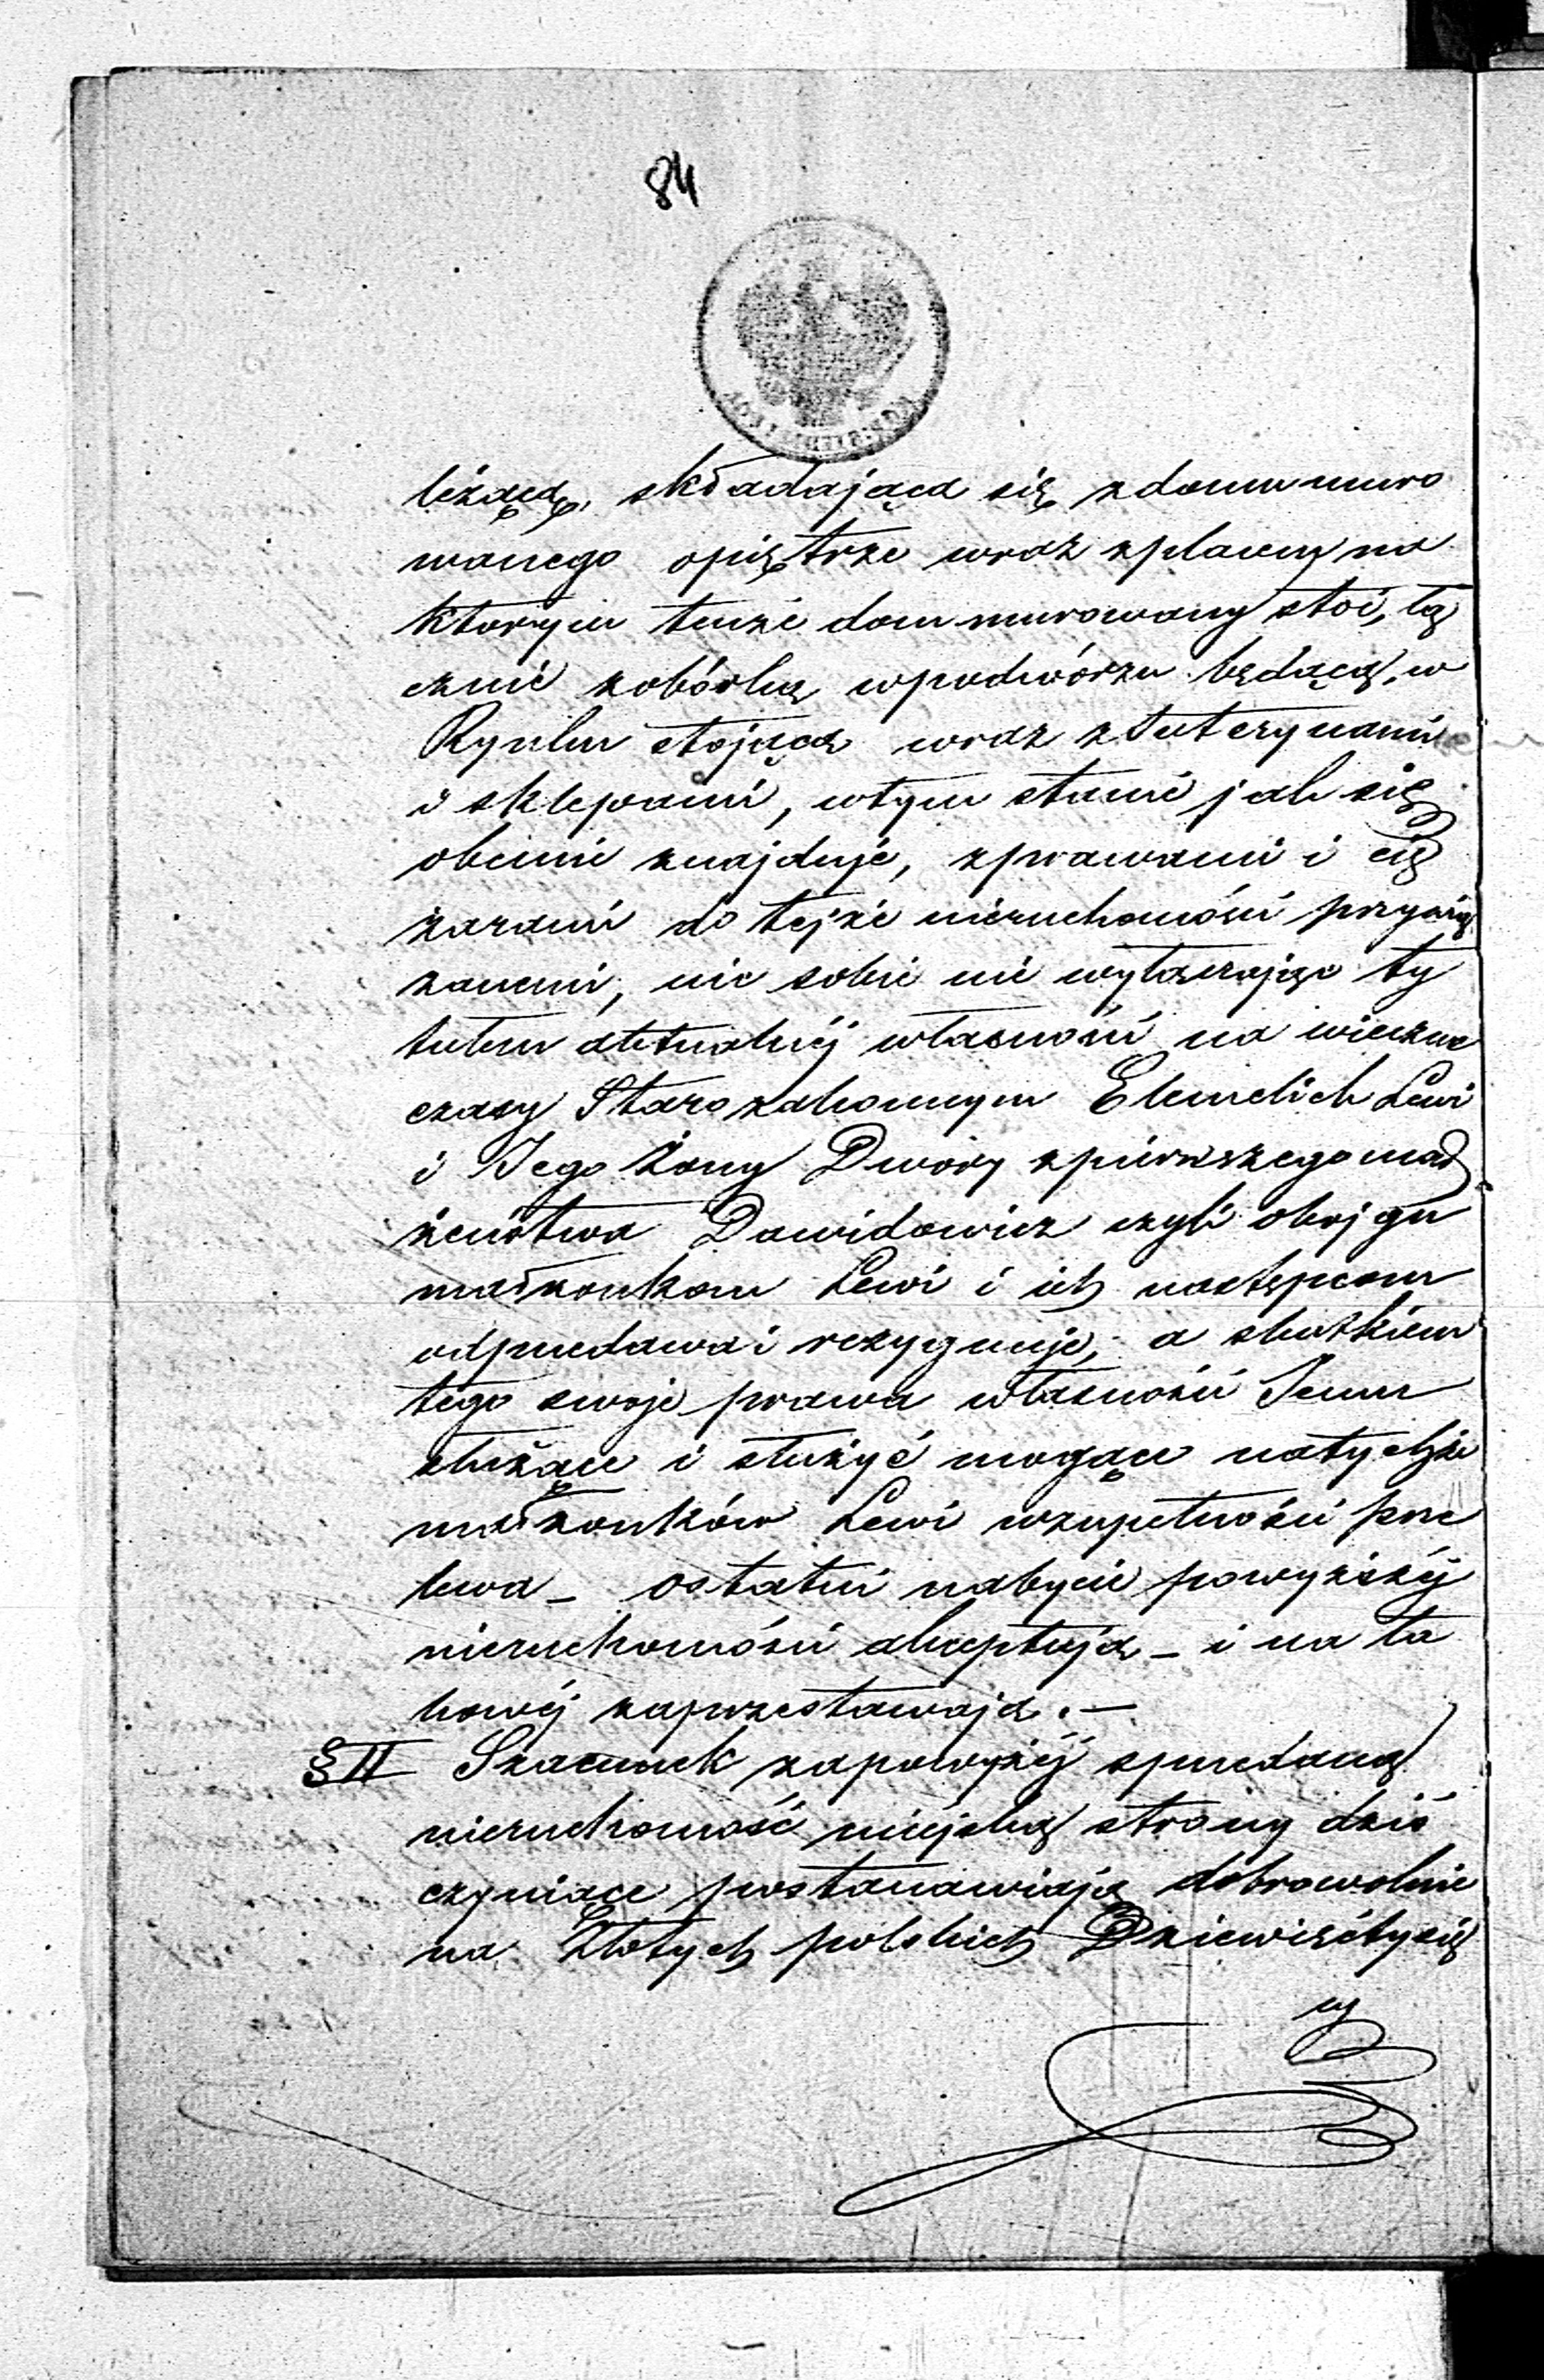 84
leżącą, składającą się zdomu muro
wanego opiętrze wraz zplacem na
ktorym tenże dom murowany stoi, łą
cznie zobórką wpodwórzu będącą, w
Rynku stojącą wraz z
i sklepami, wtym stanie jak się
obecnie znajduje, zprawami i cię
żarami do tejże nieruchomości przywią
zanemi, nic sobie nie wyłączając ty
tułem aktualnéj własności na wieczne
czasy Starozakonnym Elemelich Lewi
i Jego Żony Dwory zpierwszego mał
żeństwa Dawidowicz czyli obojgu
małżonkom Lewi i ich następcom
odprzedawa i rezygnuje, a skutkiem
tego swoje prawa własności Jemu
służące i służyć mogące natychże
małżonków Lewi wzupełności prze
lewa – ostatni nabycie powyższéj
nieruchomości akceptują – i na ta
kowéj zaprzestawają. –
§ II Szacunek zapowyżéj sprzedaną
nieruchomość miejską strony dziś
czyniące postanawiają dobrowolnie
na Złotych polskich Dziewięćtysię
cy